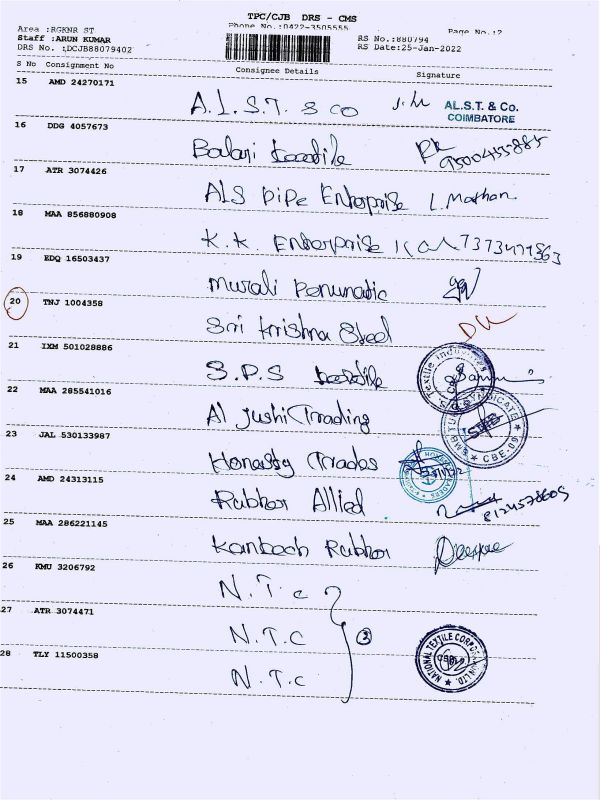 TPC/CJB DRS - CMS
Phone No.:0422-3505555
Page No.:2
Area :RGKNR ST
Staff :ARUN KUMAR
DRS No. :DCJB88079402
RS No.:880794
RS Date:25-Jan-2022
S No Consignment No Consignee Details Signature
15 AMD 24270171 A.L.S.T. & CO AL.S.T. & Co. COIMBATORE
16 DDG 4057673 Balaji textile
17 ATR 3074426 ALS PiPe Enterprise L. Mathan
18 MAA 856880908 K.K. Enterprise
19 EDQ 16503437 Murali Penumatic
20 TNJ 1004358 Sri Krishna Steel
21 IXM 501028886 S.P.S textile
22 MAA 285541016 Al Jushi Trading
23 JAL 530133987 Honasty Trades
24 AMD 24313115 Rubber Allied 8124578605
25 MAA 286221145 Kanbach Rubber Deepae
26 KMU 3206792 N.T.C
27 ATR 3074471 N.T.C 3
28 TLY 11500358 N.T.C NATIONAL TEXTILE CORPORATION LTD.